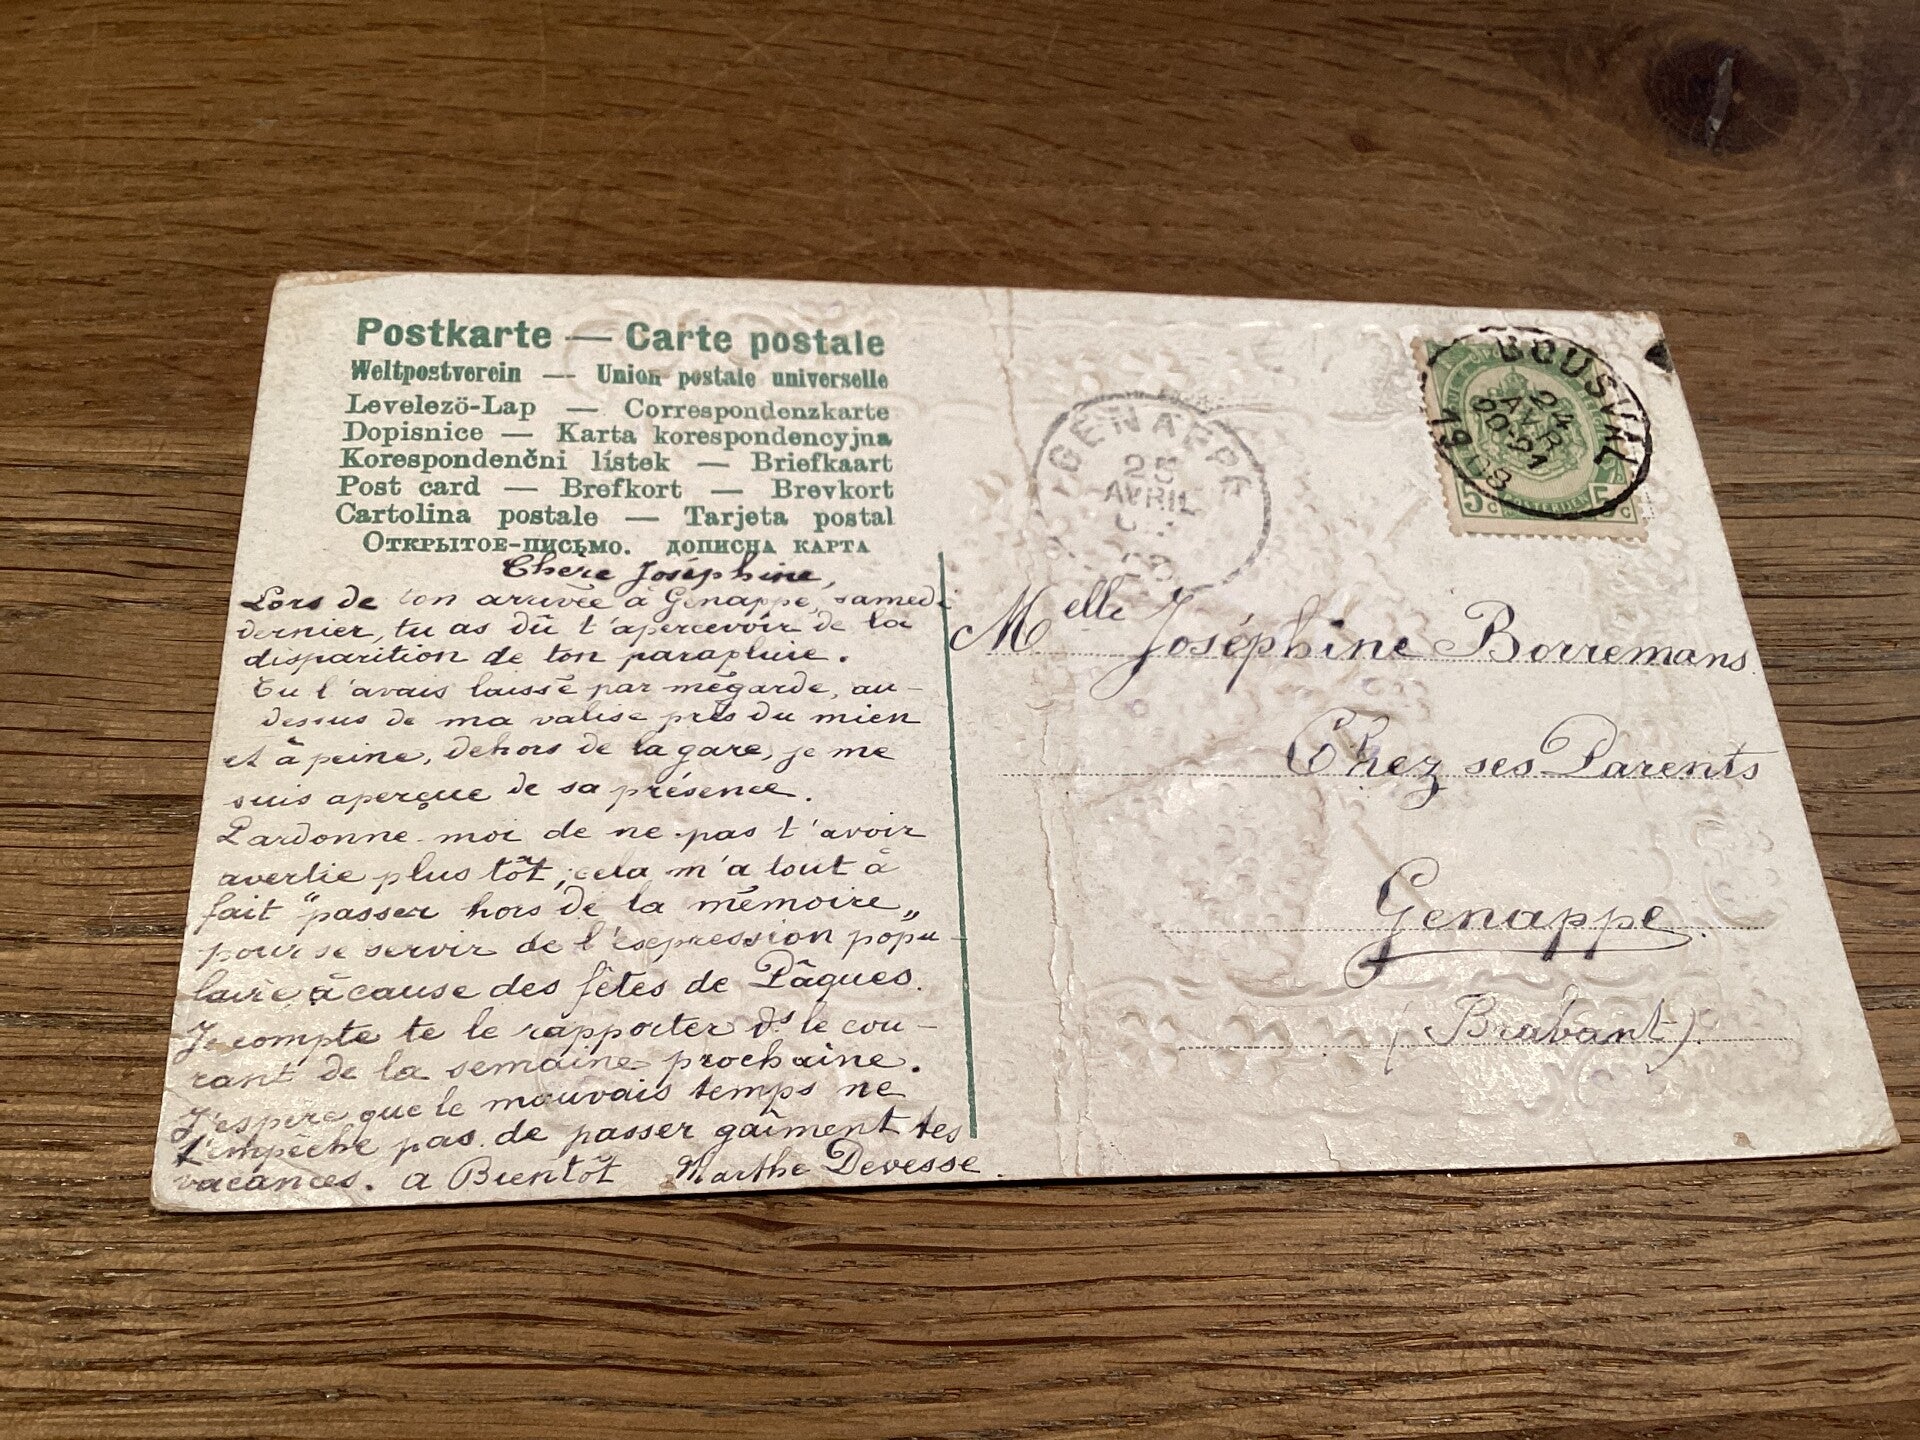 Postkarte — Carte postale
Weltpostverein — Union postale universelle
Levelezö-Lap — Correspondenzkarte
Dopisnice — Karta korespondencyjna
Korespondenčni lístek — Briefkaart
Post card — Brefkort — Brevkort
Cartolina postale — Tarjeta postal
Открытое-письмо. дописна карта
Chère Joséphine,
Lors de ton arrivée à Genappe, samedi
dernier, tu as dû t'apercevoir de la
disparition de ton parapluie.
Tu l'avais laissé par mégarde, au-
dessus de ma valise près du mien
et à peine, dehors de la gare, je me
suis aperçue de sa présence.
Pardonne-moi de ne pas t'avoir
avertie plus tôt, cela m'a tout à
fait "passer hors de la mémoire„
pour se servir de l'expression popu-
laire à cause des fêtes de Pâques.
Je compte te le rapporter ds le cou-
rant de la semaine prochaine.
J'espère que le mauvais temps ne
t'empêche pas de passer gaîment tes
vacances. a Bientôt Marthe Devesse.
GENAPPE
25
AVRIL
BOUSVAL
24
AVR
20-21
19 08
5c 5c
Melle Joséphine Borremans
Chez ses Parents
Genappe.
(Brabant)